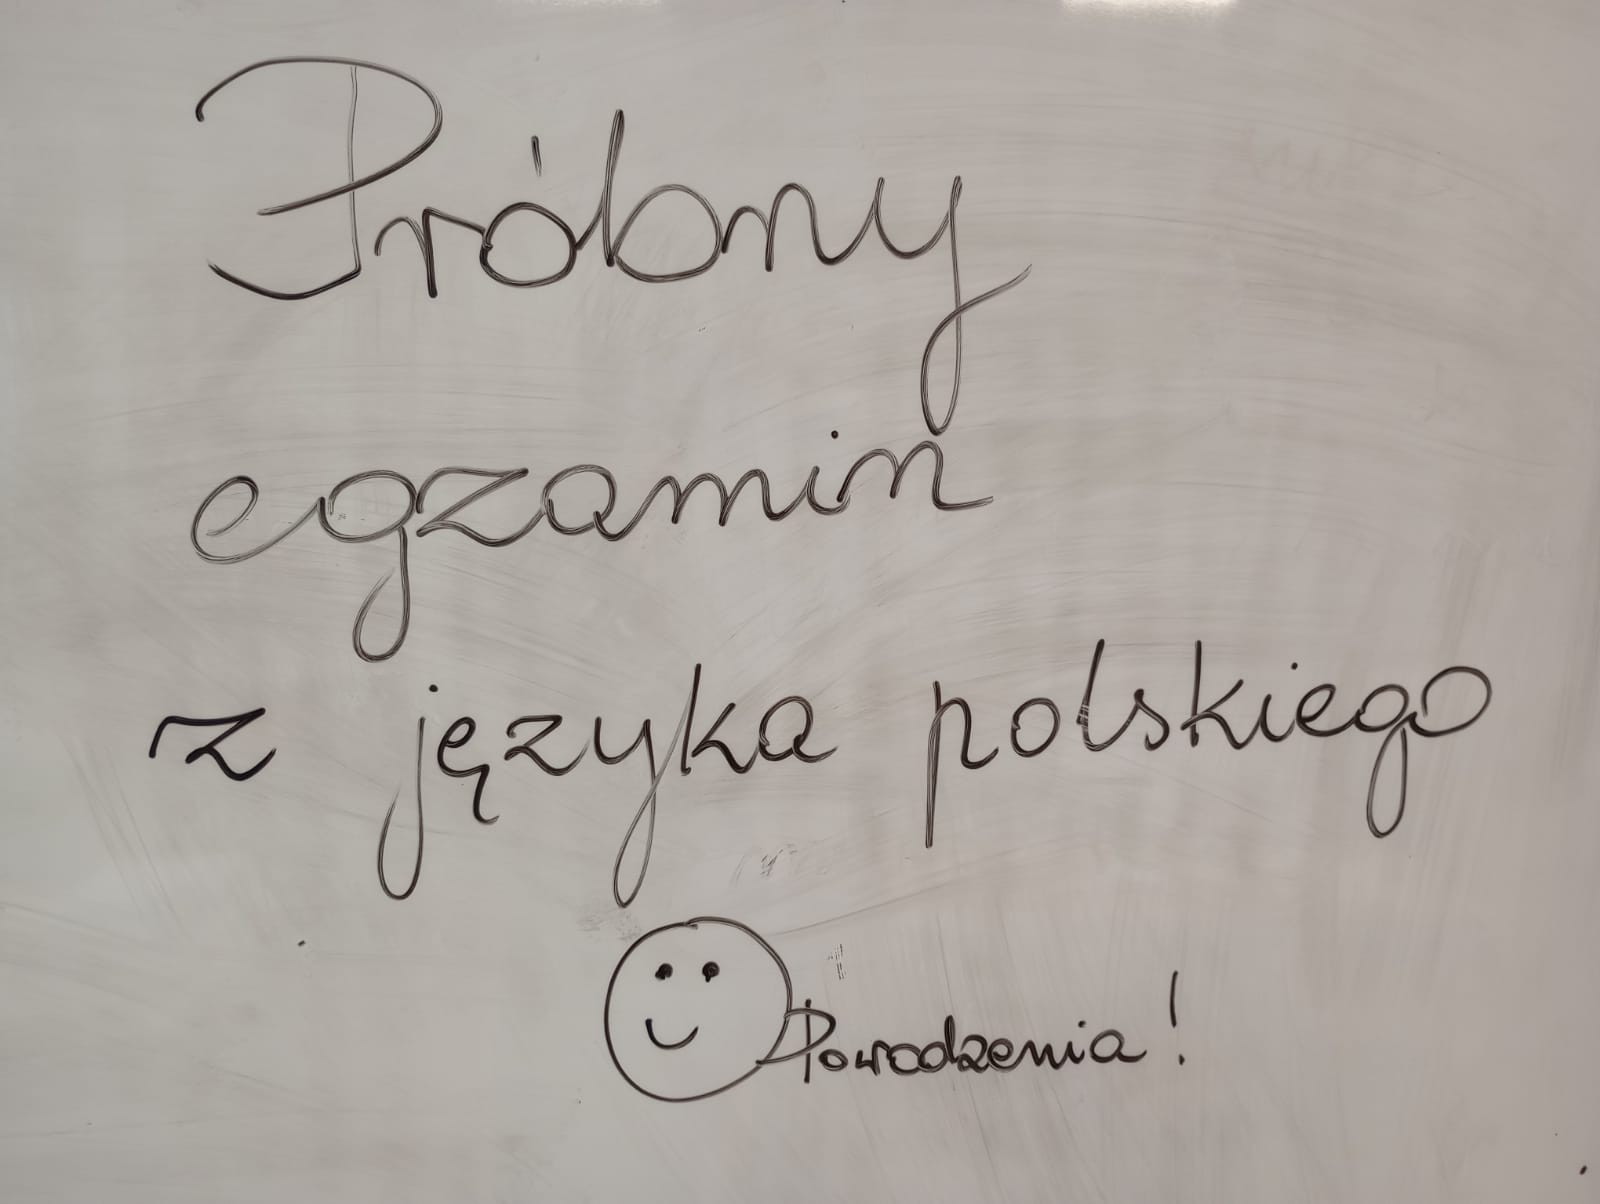 Próbny
egzamin
z języka polskiego
Powodzenia!